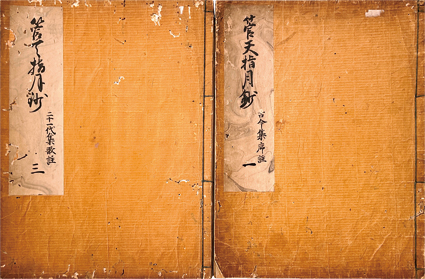 菅天指月鈔
古今集序註
一
菅天指月鈔
二十一代集歌註
三